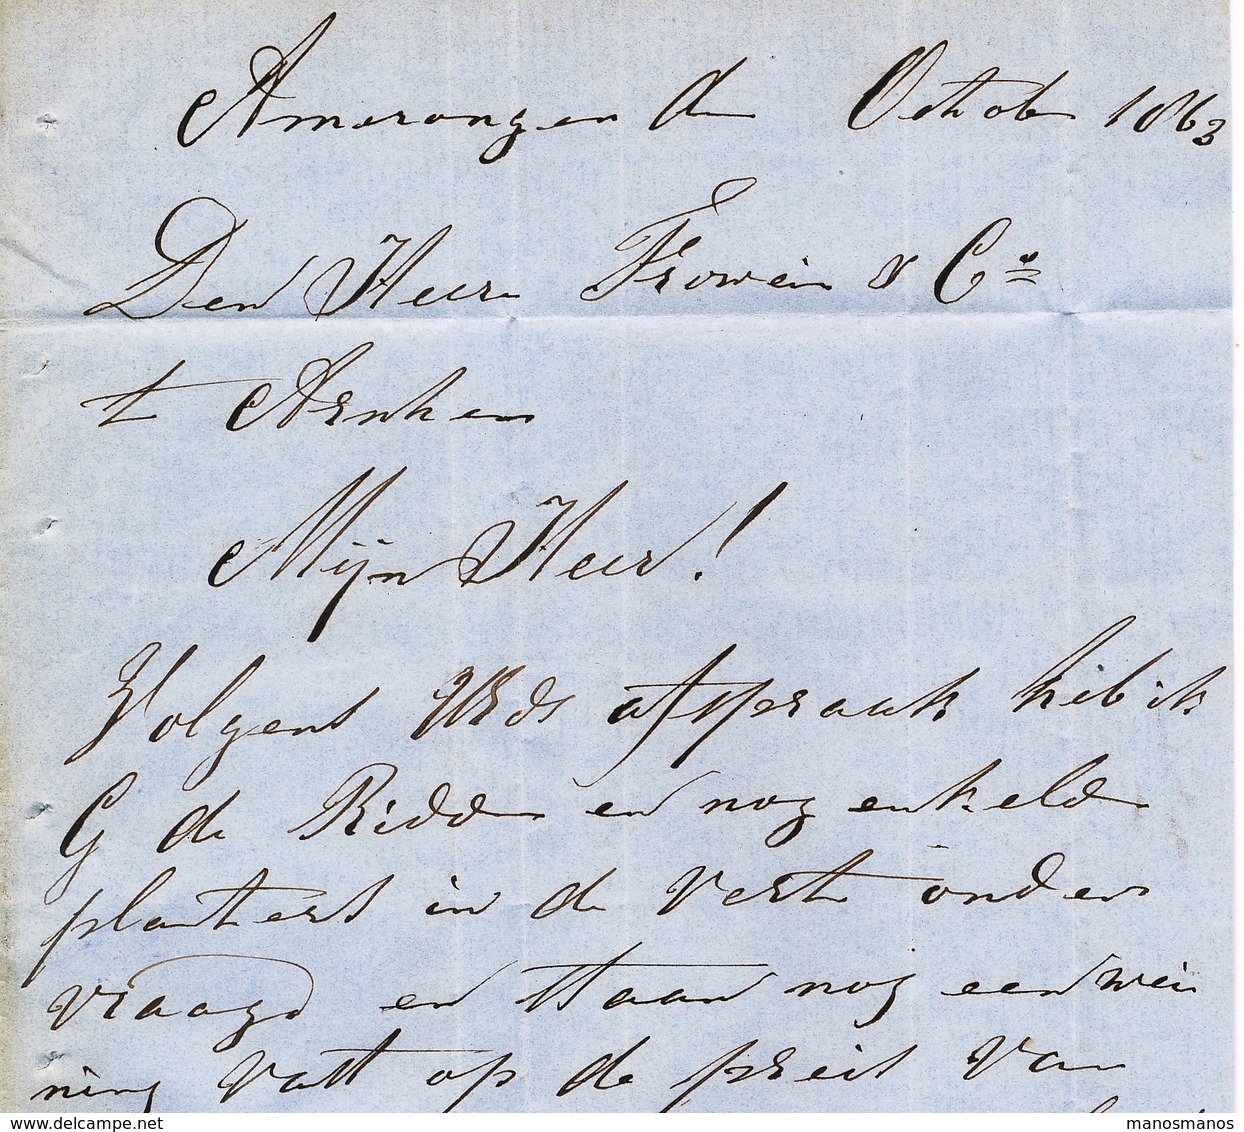 Amerongen de Octob 1863
Den Heer Frowein & Co
t Arnhem
Mijn Heer!
Volgens afspraak heb ik
G de Ridder en nog enkelde
planters in de verte onder
vraagd en staan nog een wei
ning vast op de preis van
manosmanos